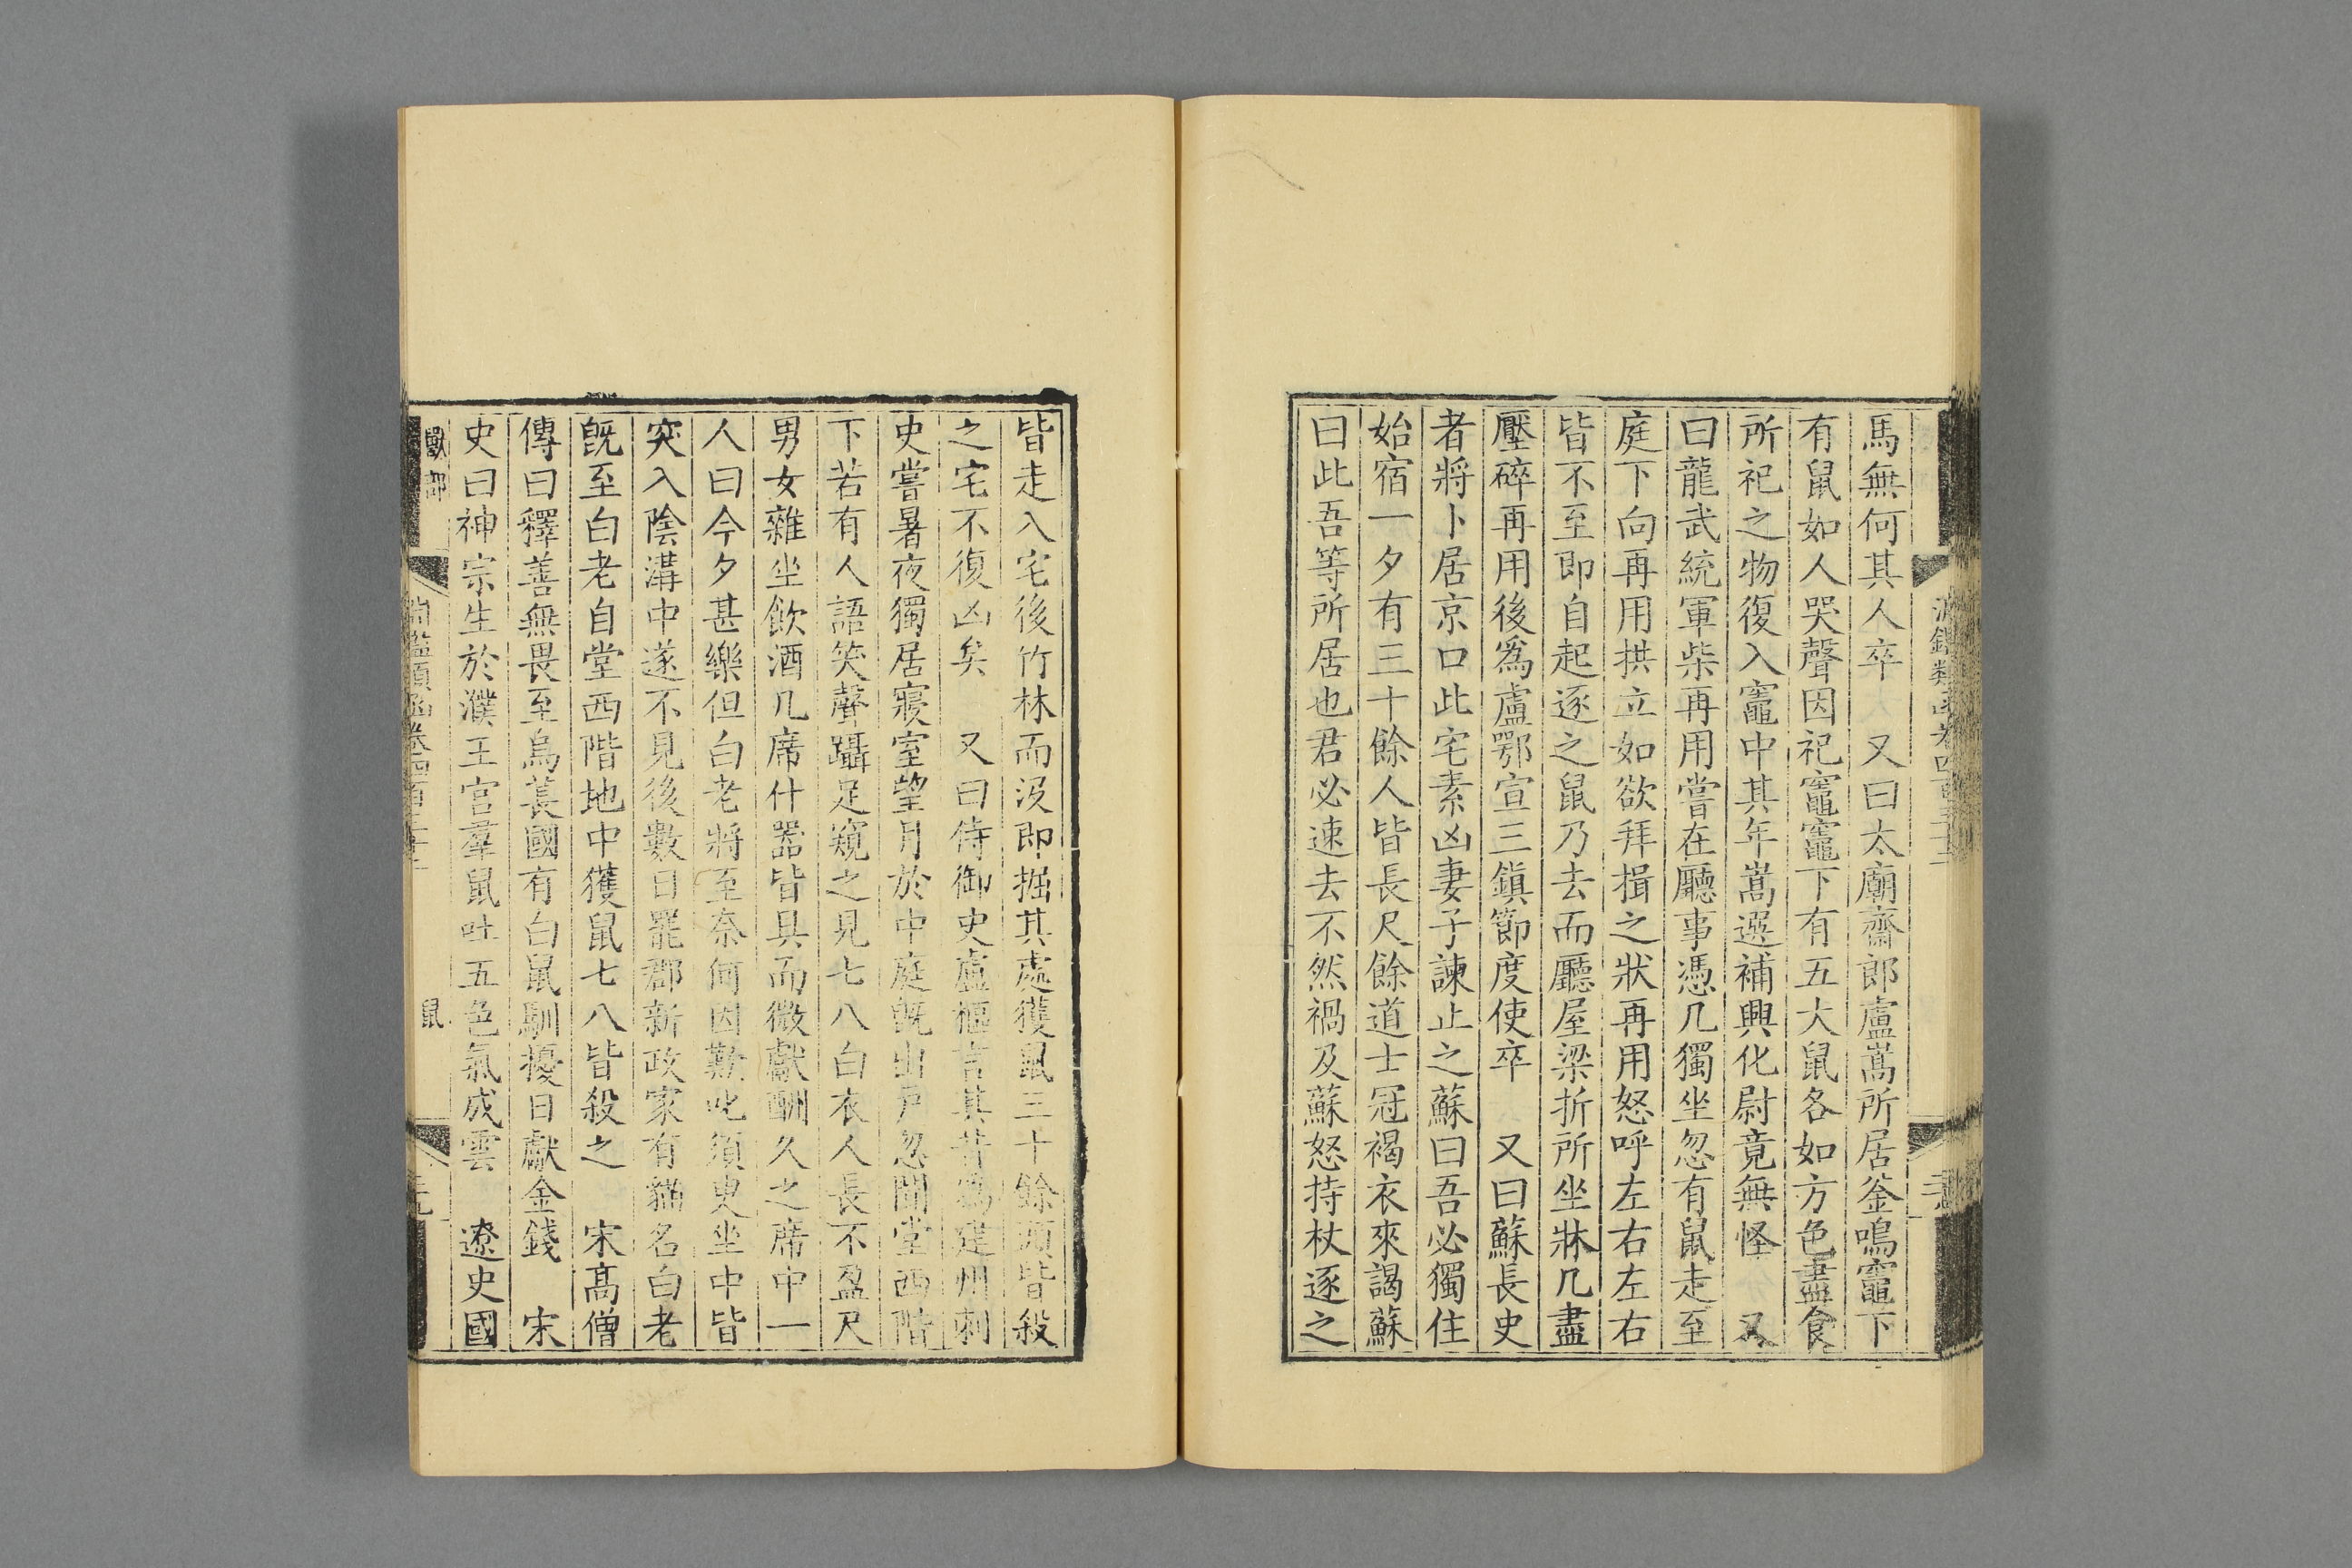 馬無何其人卒 又曰太廟齋郎盧嵩所居釜鳴竈下
有鼠如人哭聲因祀竈竈下有五大鼠各如方色盡食
所祀之物復入竈中其年嵩選補興化尉竟無怪 又
曰龍武統軍柴再用嘗在廳事憑几獨坐忽有鼠走至
庭下向再用拱立如欲拜揖之狀再用怒呼左右左右
皆不至即自起逐之鼠乃去而廳屋梁折所坐牀几盡
壓碎再用後爲盧鄂宣三鎭節度使卒 又曰蘇長史
者將卜居京口此宅素凶妻子諫止之蘇曰吾必獨住
始宿一夕有三十餘人皆長尺餘道士冠褐衣來謁蘇
曰此吾等所居也君必速去不然禍及蘇怒持杖逐之
皆走入宅後竹林而沒即掘其處獲鼠三十餘頭皆殺
之宅不復凶矣 又曰侍御史盧樞言其昔爲建州刺
史嘗暑夜獨居寢室望月於中庭旣出戶忽聞堂西階
下若有人語笑聲躡足窺之見七八白衣人長不盈尺
男女雜坐飮酒几席什器皆具而微獻酬久之席中一
人曰今夕甚樂但白老將至奈何因歎叱須臾坐中皆
突入陰溝中遂不見後數日罷郡新政家有貓名白老
旣至白老自堂西階地中獲鼠七八皆殺之 宋高僧
傳曰釋善無畏至烏萇國有白鼠馴擾日獻金錢 宋
史曰神宗生於濮王宮羣鼠吐五色氣成雲 遼史國
獸部 鼠